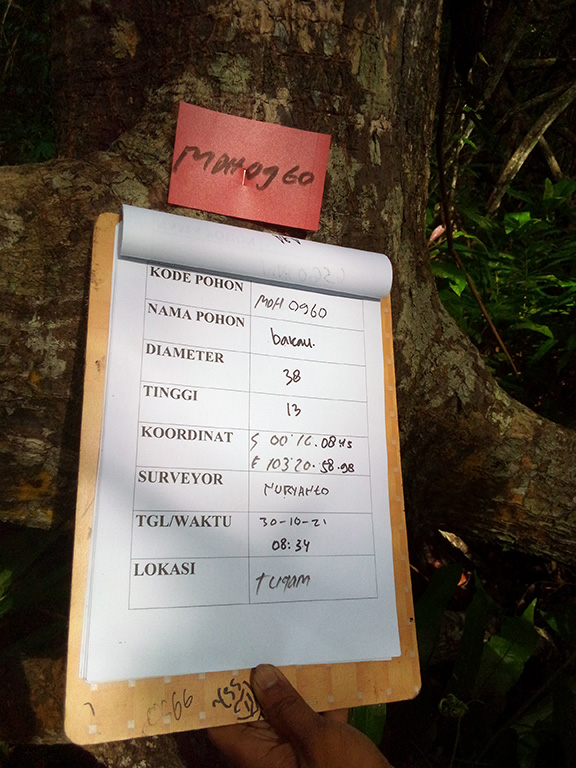 MOH0960
KODE POHON MOH 0960
NAMA POHON bakau.
DIAMETER 38
TINGGI 13
KOORDINAT S 00°16.0845
E 103°20.58.98
SURVEYOR NURYANTO
TGL/WAKTU 30-10-21
08:34
LOKASI